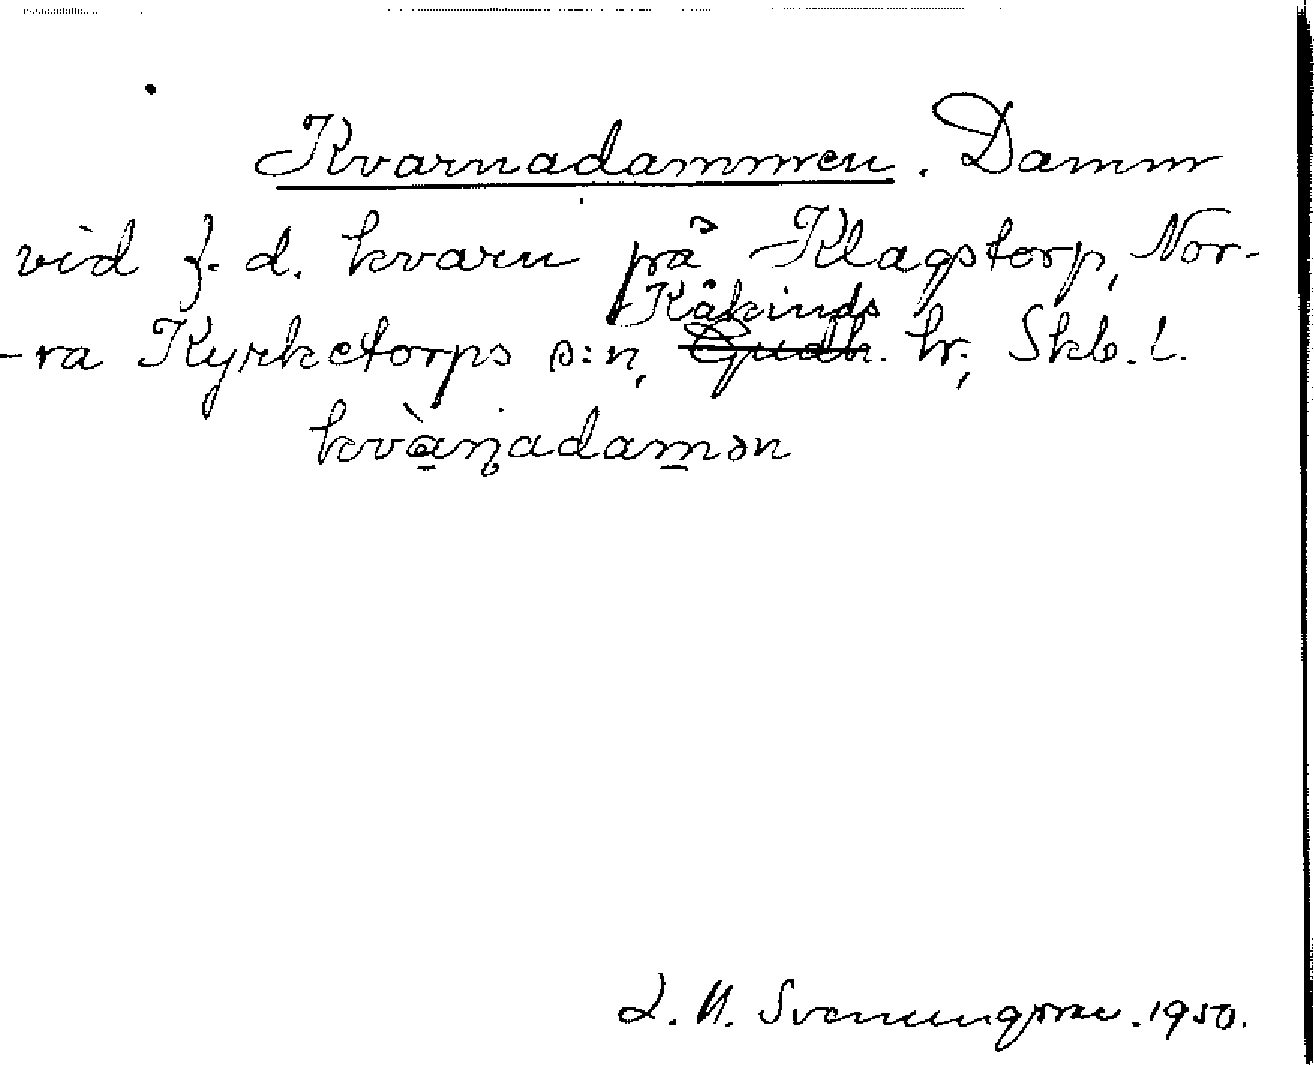 Kvarnadammen. Damm
vid f. d. kvarn på Klagstorp, Nor-
Kåkinds
-ra Kyrketorps s:n, Gudh. hr, Skb. l.
kvàn̥adamən
L. N. Svenungsson. 1950.